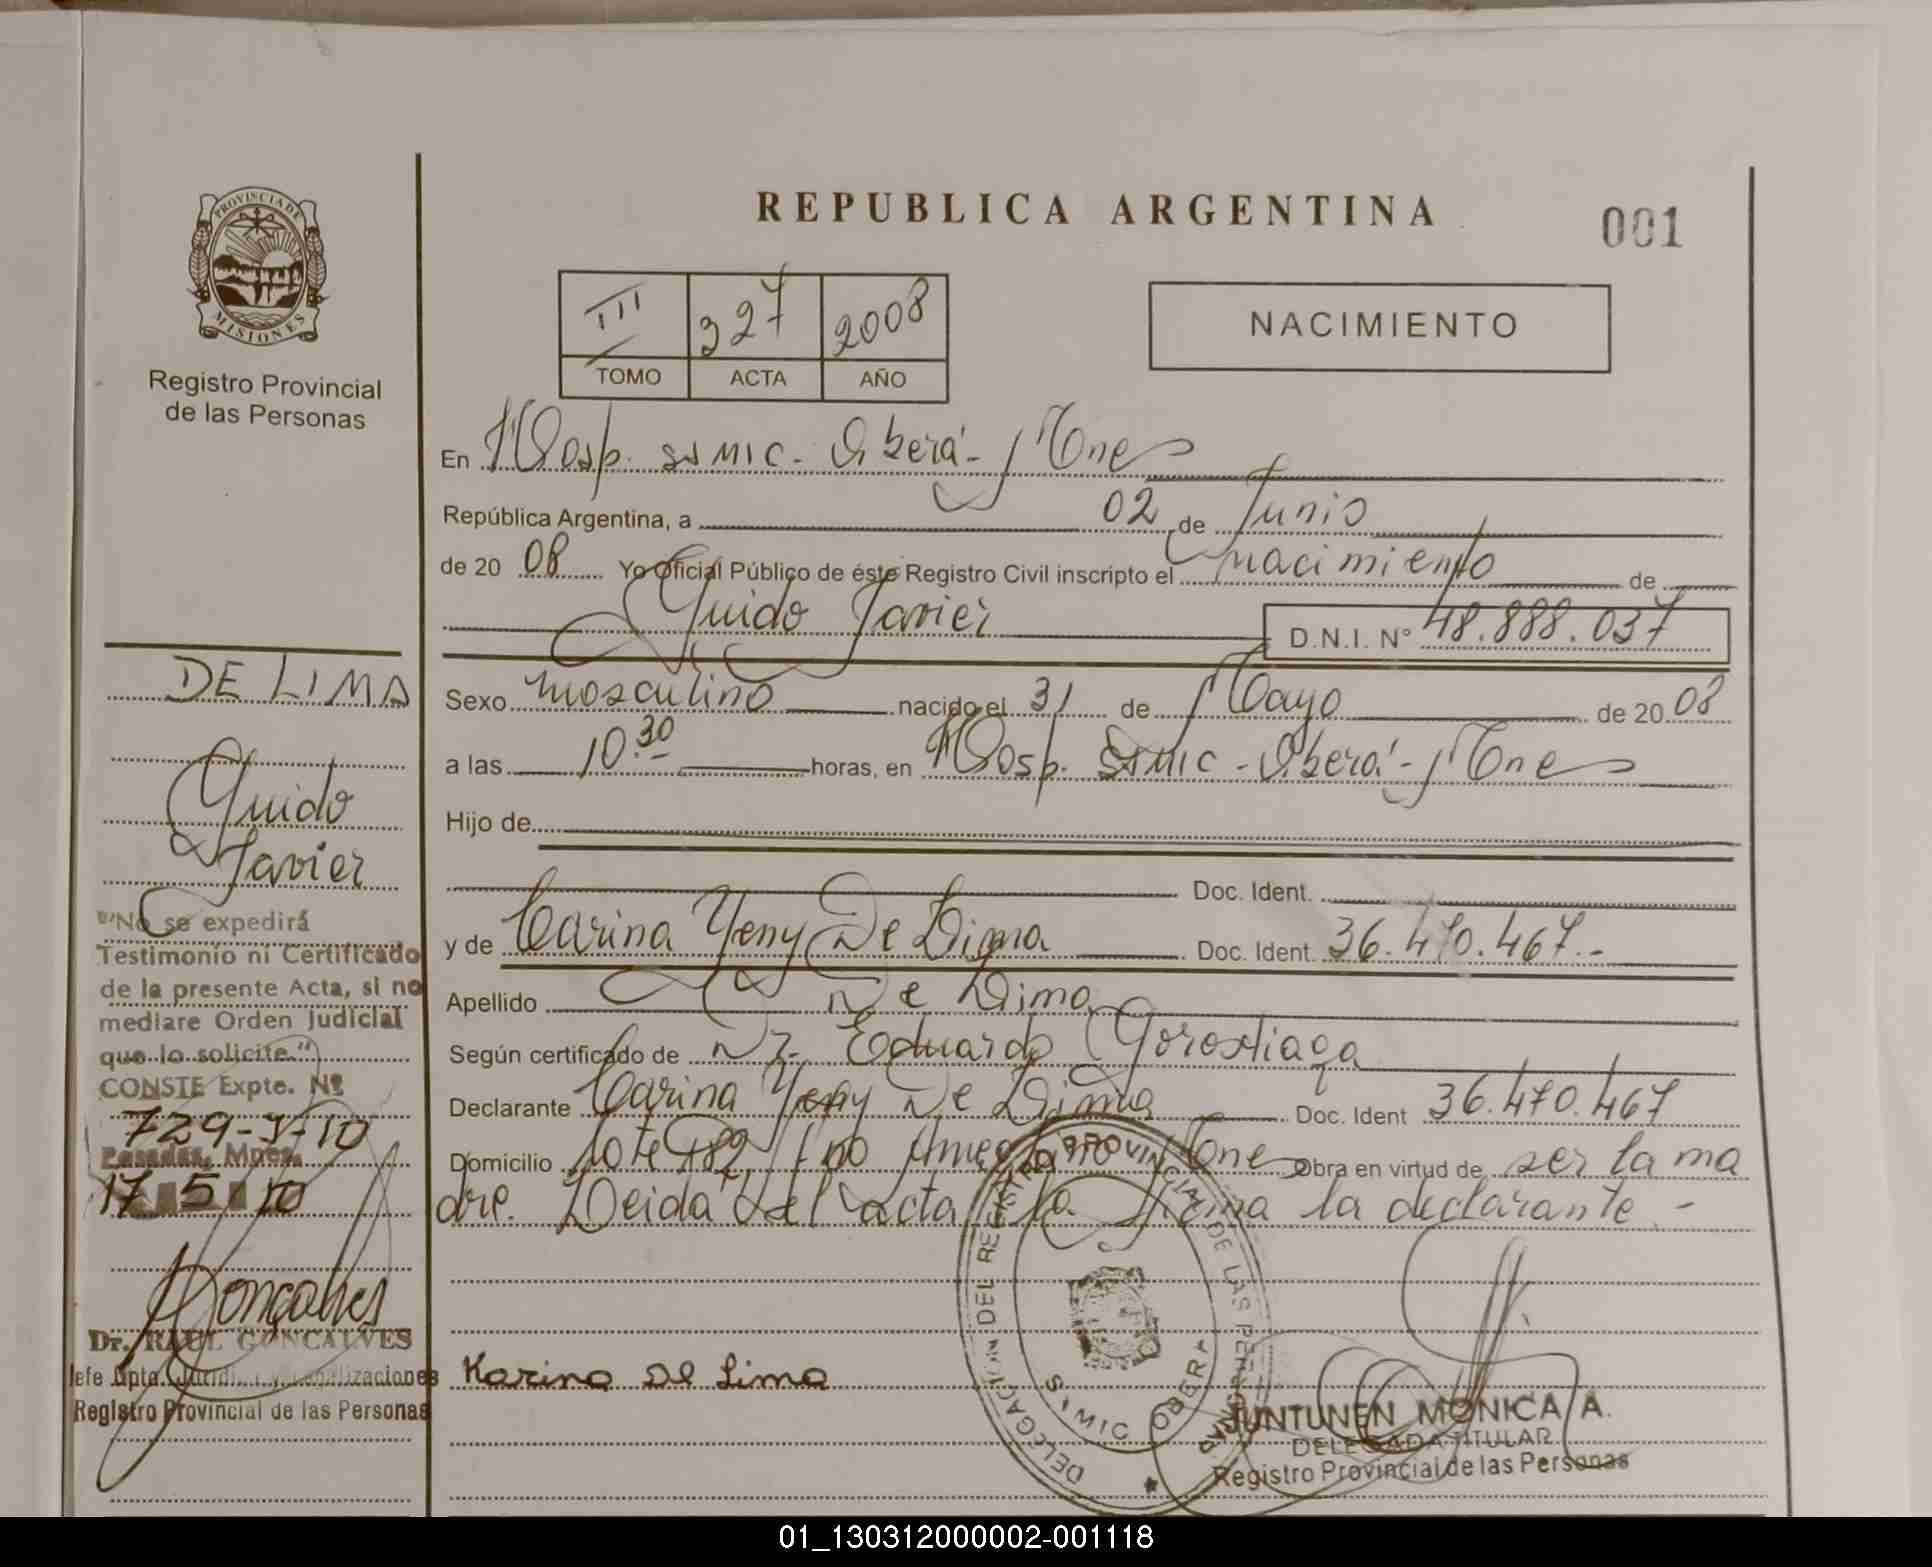 PROVINCIA DE
MISIONES
Registro Provincial
de las Personas
REPUBLICA ARGENTINA
001
III 327 2008
TOMO ACTA AÑO
NACIMIENTO
En Hosp. SAMIC - Oberá - Mnes
República Argentina, a 02 de Junio
de 20 08 Yo Oficial Público de éste Registro Civil inscripto el nacimiento de
Guido Javier D.N.I. Nº 48.888.037
Sexo masculino nacido el 31 de Mayo de 20 08
a las 10.30 horas, en Hosp. SAMIC - Oberá - Mnes
Hijo de
Doc. Ident.
y de Carina Yeny De Lima Doc. Ident. 36.470.467.-
Apellido De Lima
Según certificado de Dr. Eduardo Gorostiaga
Declarante Carina Yeny De Lima Doc. Ident 36.470.467
Domicilio Lote 182 Mnes Obra en virtud de ser la ma
dre. Leida del acta la firma la declarante.-
Karina De Lima
DELEGACION DEL REGISTRO PROVINCIAL DE LAS PERSONAS
SAMIC OBERA
JUNTUNEN MONICA A.
DELEGADA TITULAR
Registro Provincial de las Personas
DE LIMA
Guido
Javier
"No se expedirá
Testimonio ni Certificado
de la presente Acta, si no
mediare Orden Judicial
que lo solicite."
CONSTE Expte. Nº
729-J-10
Posadas, Mnes.
17 5 10
Goncalves
Dr. RAUL GONCALVES
Jefe Dpto.
Registro Provincial de las Personas
01_130312000002-001118